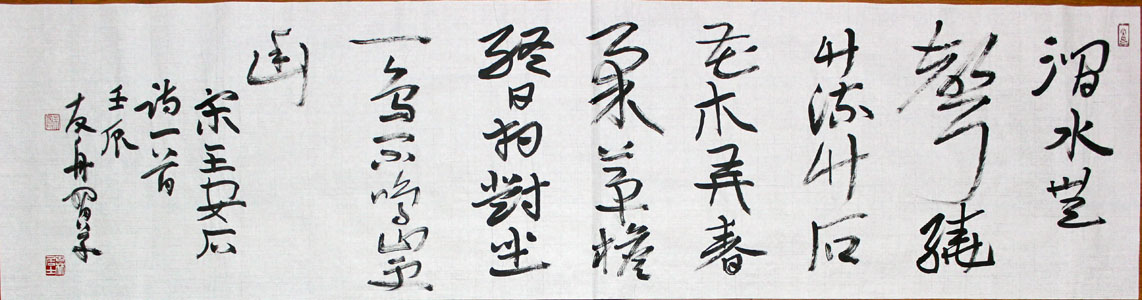 澗水無
聲繞
竹流竹西
花木弄春
柔茅檐
終日相對坐
一鸟不鳴山更
幽
宋王安石
詩一首
壬辰
友舟習